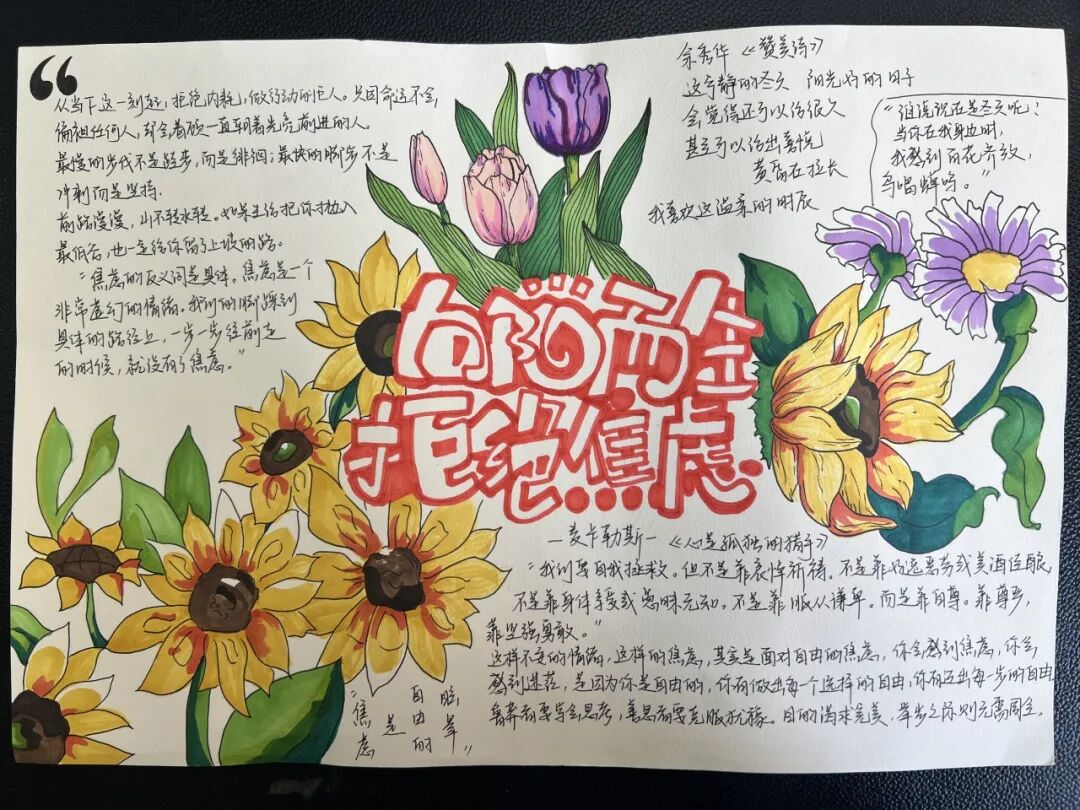 从当下这一刻起，拒绝内耗，做行动的巨人。只因命运不会
偏袒任何人，却会眷顾一直朝着光亮前进的人。
最慢的步伐不是跬步，而是徘徊；最快的脚步不是
冲刺而是坚持.
前路漫漫，山不轻水轻。如果生活把你抛入
最低谷，也一定给你留了上坡的路。
“焦虑的反义词是具体，焦虑是一个
非常虚幻的情绪。我们的脚踩到
具体的路径上，一步一步往前走
的时候，就没有了焦虑。”
余秀华《赞美诗》
这宁静的冬天 阳光好的日子
会觉得还可以活很久
甚至可以活出喜悦
黄昏在拉长
我喜欢这温柔的时辰
“谁说现在是冬天呢？
当你在我身边时，
我感到百花齐放，
鸟唱蝉鸣。”
向阳而生
拒绝焦虑
—麦卡勒斯—《心是孤独的猎手》
“我们要自我拯救。但不是靠哀悼祈祷。不是靠好逸恶劳或美酒佳酿，
不是靠身体享受或愚昧无知，不是靠服从谦卑。而是靠自尊。靠尊严，
靠坚强勇敢。”
这样不安的情绪，这样的焦虑，其实是面对自由的焦虑，你会感到焦虑，你会
感到迷茫，是因为你是自由的，你有做出每一个选择的自由，你有迈出每一步的自由
鲁莽者要学会思考，善思者要克服犹豫。目的渴求完美，举步之际则无需周全.
“焦虑
是
自由的
眩晕”